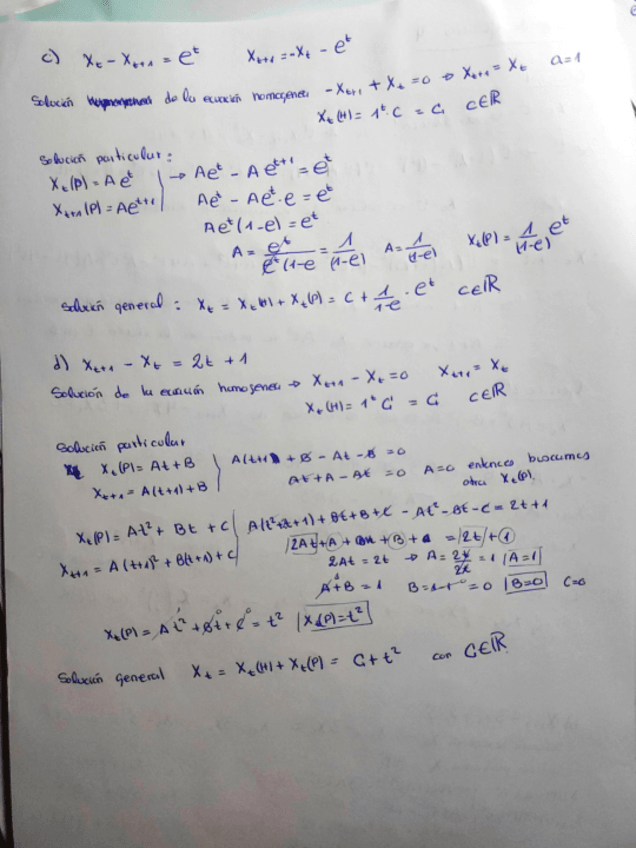 c) Xt - Xt+1 = e^t    Xt+1 = -Xt - e^t
Solución de la ecuación homogenea -Xt+1 + Xt = 0 → Xt+1 = Xt   a=1
Xt(H) = 1^t · C = C,   C∈ℝ
Solución particular:
Xt(P) = Ae^t
Xt+1(P) = Ae^t+1
→ Ae^t - Ae^t+1 = e^t
Ae^t - Ae^t · e = e^t
Ae^t(1-e) = e^t
A = e^t/e^t(1-e = 1/(1-e)   A = 1/(1-e)   Xt(P) = 1/(1-e) e^t
Solución general : Xt = Xt(H) + Xt(P) = C + 1/1-e · e^t   C∈ℝ
d) Xt+1 - Xt = 2t + 1
Solución de la ecuación homogenea → Xt+1 - Xt = 0   Xt+1 = Xt
Xt(H) = 1^t C = C   C∈ℝ
Solución particular
Xt(P) = At + B
Xt+1 = A(t+1) + B
A(t+1) + B - At - B = 0
At + A - At = 0   A=0 entonces buscamos
otra Xt(P).
Xt(P) = At² + Bt + C
Xt+1 = A(t+1)² + B(t+1) + C
A(t²+2t+1) + Bt + B + C - At² - Bt - C = 2t + 1
2At + A + B = 2t + 1
2At = 2t → A = 2t/2t = 1   A=1
A + B = 1   B = 1-1 = 0   B=0   C=0
Xt(P) = At² + Bt + C = t²   Xt(P) = t²
Solución general   Xt = Xt(H) + Xt(P) = C + t²   con C∈ℝ.